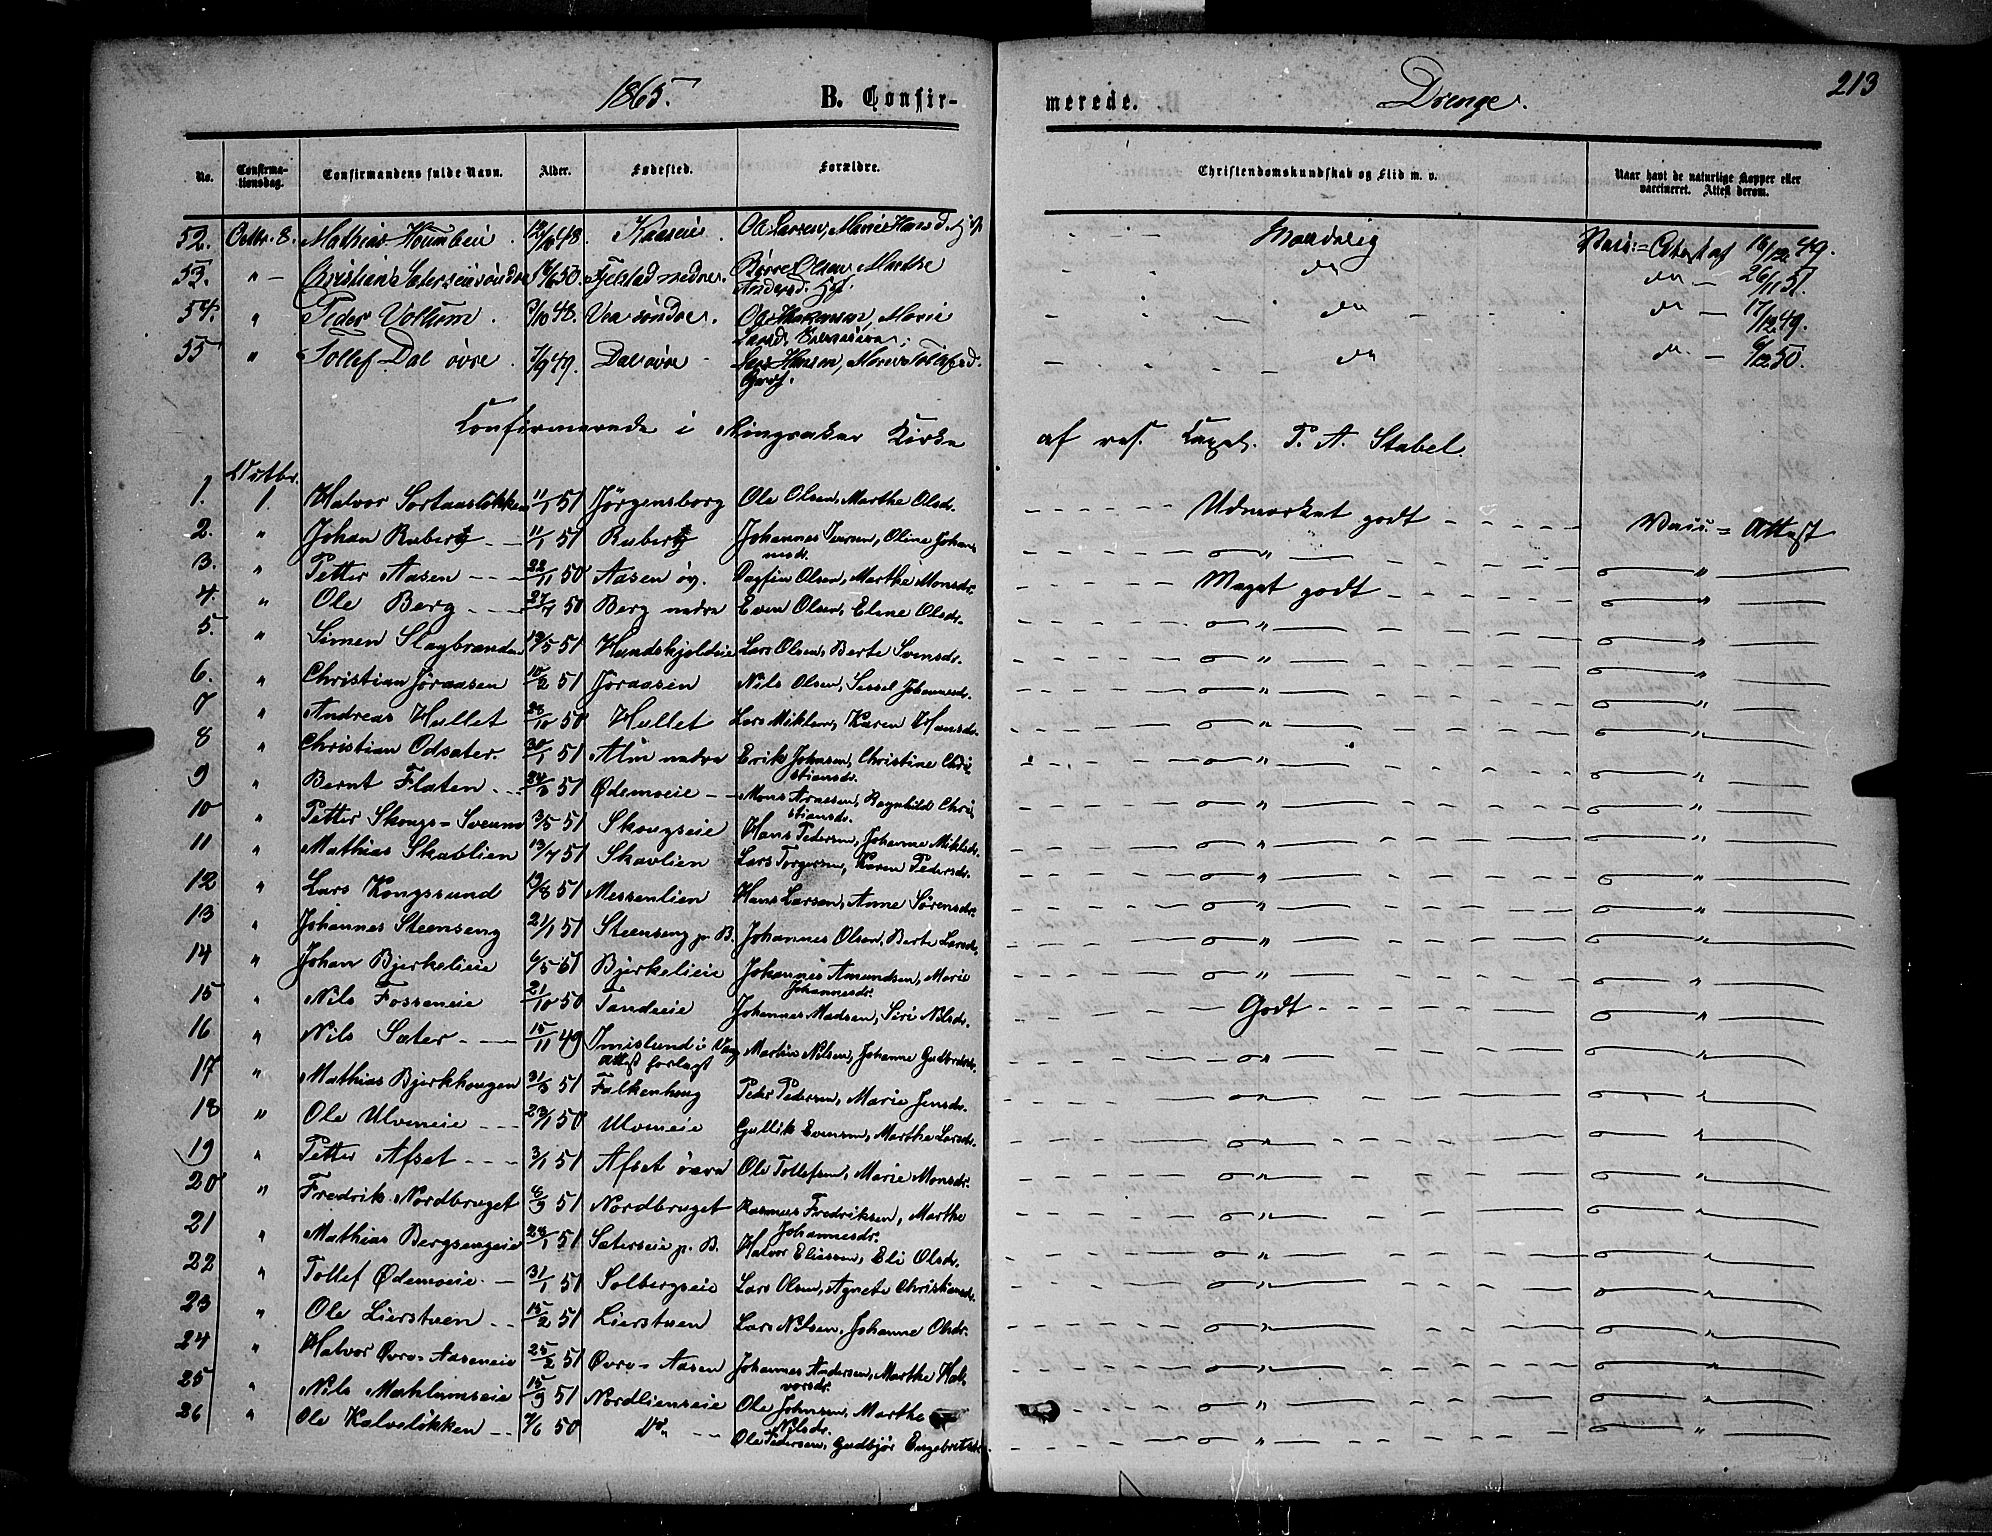 1865. B. Confirmerede. Drenge. 213
No. Confirmationsdag. Confirmandens fulde Navn. Alder. Fødested. Forældre. Christendomskundskab og Flid m. v. Naar havt de naturlige Kopper eller vaccineret. Attest derom.
52. Octbr. 8. Mathias 12/ 48. Ole Larsen, Marie Hansd. Maadelig Vacc: = Attest af 16/12 49.
53. " - Christian 50 Fjelstad nedre. Børre Olsen, Marthe do do — 26/11 51.
Andersd.
54. " Peder Vollum. /10 48. Ole Marie do do — 17/12 49.
Larsd.
55 " Tollef Dal øvre /9 49. Dal øvre Lars Hansen, Marie Tollefsd. do do. — 6/12 50.
Confirmerede i Ringsaker Kirke af res. Capel. P. A. Stabel.
1. Octbr. 1. Halvor Sortaasløkken 11/1 51 Jörgensborg Ole Olsen, Marthe Olsdr. Udmærket godt Vacc: = Attest
2. " Johan Ruberg 11/1 51 Ruberg Johannes Iversen, Oline Johannesdr. " "
3. " Petter Aasen 22/11 50 Aasen öv. Dagfin Olsen, Marthe Monsdr. Meget godt "
4. " Ole Berg 50 Berg nedre Even Olsen, Eline Olsdr. " "
5. " Simen Slaybranden 19/5 51 Hundskjoldeie Lars Olsen, Berte Svensdr. " "
6. " Christian Jöraasen 10/2 51 Joraasen Nils Olsen, Sessel Johannesdr. " "
7 " Andreas Hullet 28/10 50 Hullet Lars Miklsen, Karen Hansdr. " "
8 " Christian Odsater. 30/1 51 Alm nedre Erik Johnsen, Christine Christiansdr. " "
9 " Bernt Flaten 51 Ødemoeie Mons Arnesen, Ragnhild Christiansdr. " "
10 " Petter Skougs-Sveum 3/5 51 Skougseie Hans Pedersen, Johanne Miklsdr. " "
11 " Mathias Skablien 13/7 51 Skavlien Lars Torgersen, Karen Pedersdr. " "
12 " Lars Kongssund 19/8 51 Messenlien Hans Larsen, Anne Sörensdr. " "
13 " Johannes Steenseng 21/1 51 Steenseng p. B. Johannes Olsen, Berte Larsdr. " "
14 " Johan Bjerkelieie 6/5 51 Bjerkelieie Johannes Amundsen, Marie Johannesdr. " "
15 " Nils Fosseneie 21/10 50 Tandeeie Johannes Madsen, Siri Nilsdr. Godt "
16 " Nils Sater 15/11 49 Imislund i Vang Martin Nilsen, Johanne Gudbrdsdr. " "
attest forlagt
17 " Mathias Bjerkhougen 31/3 51 Falkenhoug Peder Pedersen, Marie Jensdr. " "
18 " Ole Ulveneie 50 Ulveneie Gullik Evensen, Marthe Larsdr. " "
19 " Petter Afset 3/1 51 Afset övre Ole Tollefsen, Marie Monsdr. " "
20 " Fredrik Nordbruget 6/9 51 Nordbruget Rasmus Fredriksen, Marthe Johannesdr. " "
21 " Mathias Bergsengeie 28/1 51 Saterseie p. B. Halvor Eliassen, Eli Olsdr. " "
22 " Tollef Ødemoeie 31/1 51 Solbergseie Lars Olsen, Agnete Christiansdr. " "
23 " Ole Lierstuen 15/2 51 Lierstuen Lars Nilsen, Johanne Olsdr. " "
24 " Halvor Øvre-Aaseneie 25/2 51 Øvre-Aasen Johannes Andersen, Marthe Halvorsdr. " "
25 " Nils Mæhlumseie 15/9 51 Nordlienseie Ole Johnsen, Marthe Nilsdr. " "
26 " Ole Kalveløkken /6 50 Do. Ole Pedersen, Gudbjør Engebretsdr. " "